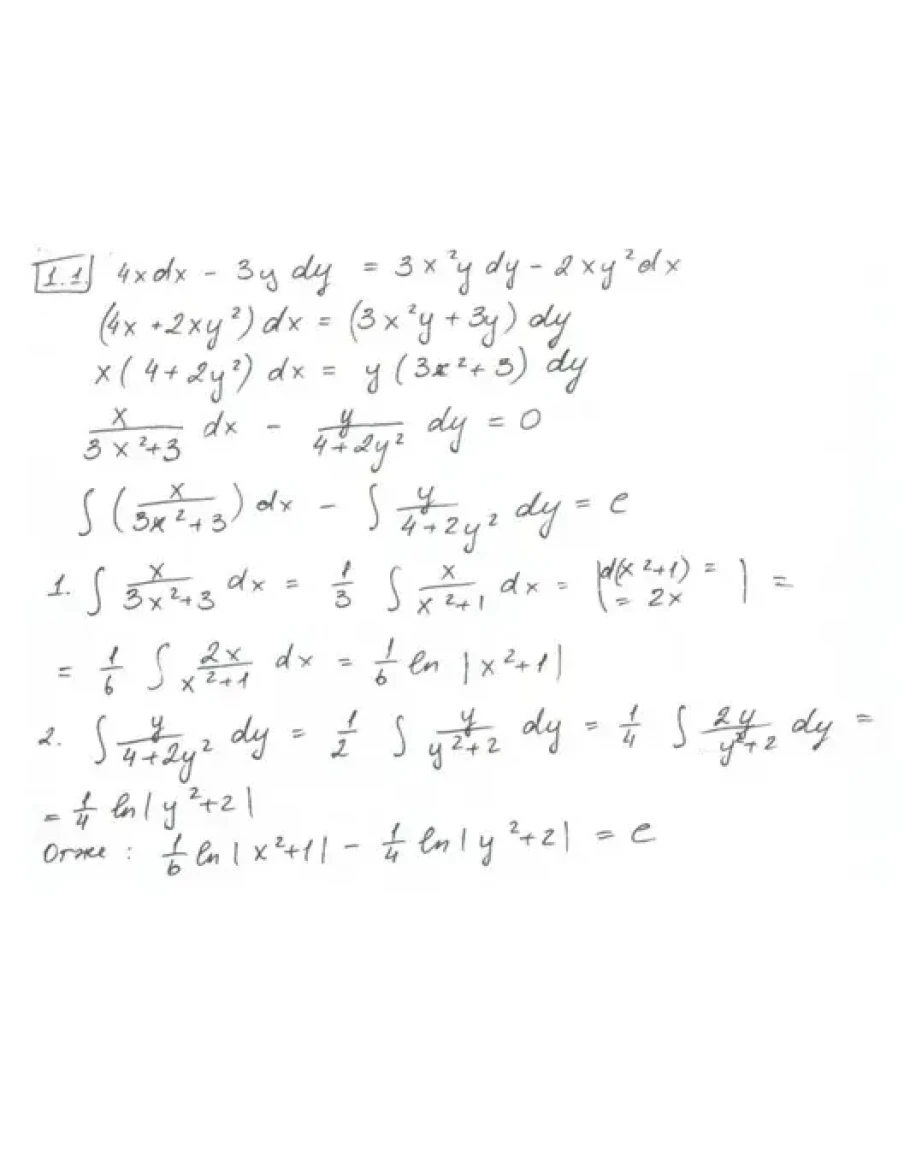 1.1. 4xdx - 3y dy = 3x²y dy - 2xy²dx
(4x + 2xy²) dx = (3x²y + 3y) dy
x(4 + 2y²) dx = y(3x² + 3) dy
x/(3x²+3) dx - y/(4+2y²) dy = 0
∫(x/(3x²+3)) dx - ∫ y/(4+2y²) dy = c
1. ∫ x/(3x²+3) dx = 1/3 ∫ x/(x²+1) dx = |d(x²+1) = = 2x| =
= 1/6 ∫ 2x/(x²+1) dx = 1/6 ln |x²+1|
2. ∫ y/(4+2y²) dy = 1/2 ∫ y/(y²+2) dy = 1/4 ∫ 2y/(y²+2) dy =
= 1/4 ln|y²+2|
Отже: 1/6 ln|x²+1| - 1/4 ln|y²+2| = c